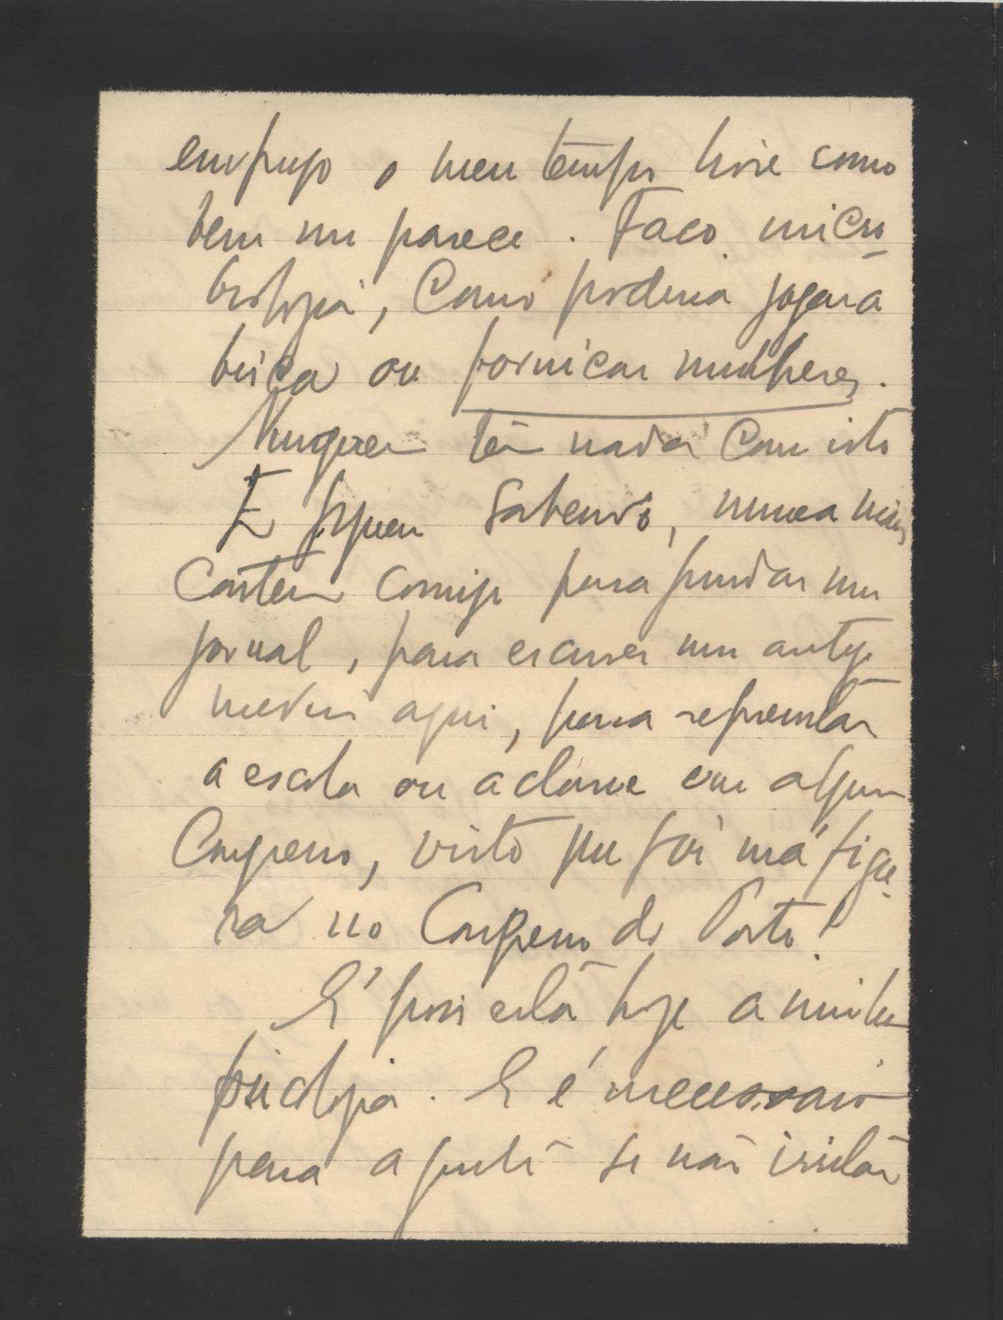 emprego o meu tempo livre como
bem me parece. Faço micro-
biologia, como poderia jogar a
bisca ou fornicar mulheres.
Ninguem tem nada com isto
E fiquem sabendo, nunca mais
contem comigo para fundar um
jornal, para escrever um artigo
medico aqui, para representar
a escola ou a classe em algum
Congresso, visto que foi má figu-
ra no Congresso do Porto!
E' pois esta hoje a minha
psicologia. E é necessario
para a gente se não